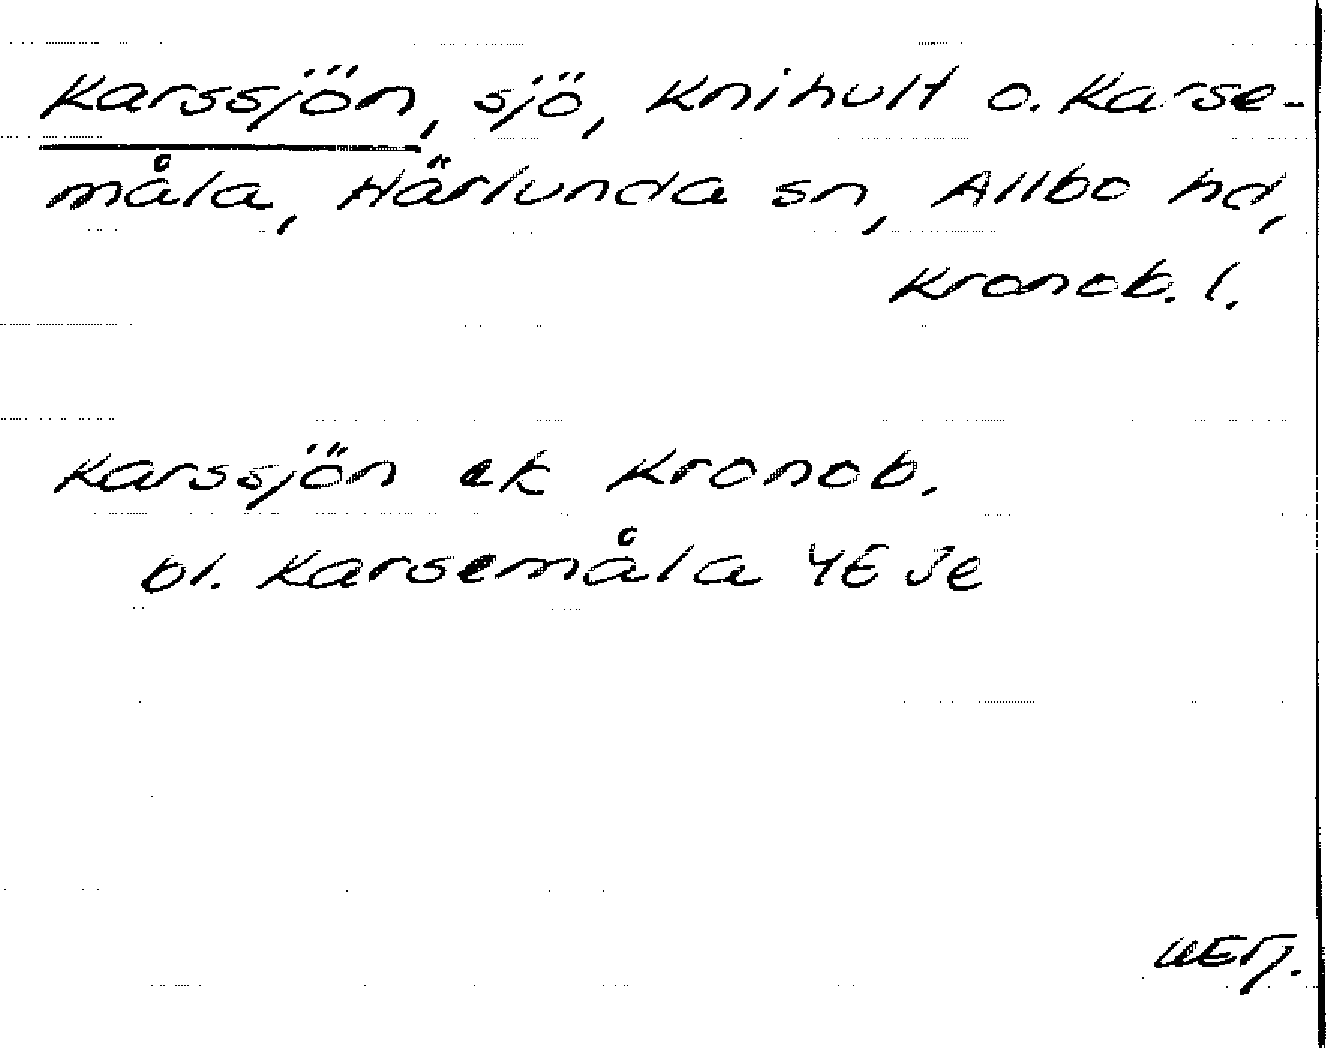 Karssjön, sjö, Knihult o. Karse-
måla, Härlunda sn, Allbo hd,
Kronob. l.
Karssjön ek Kronob.
bl. Karsemåla 4E Je